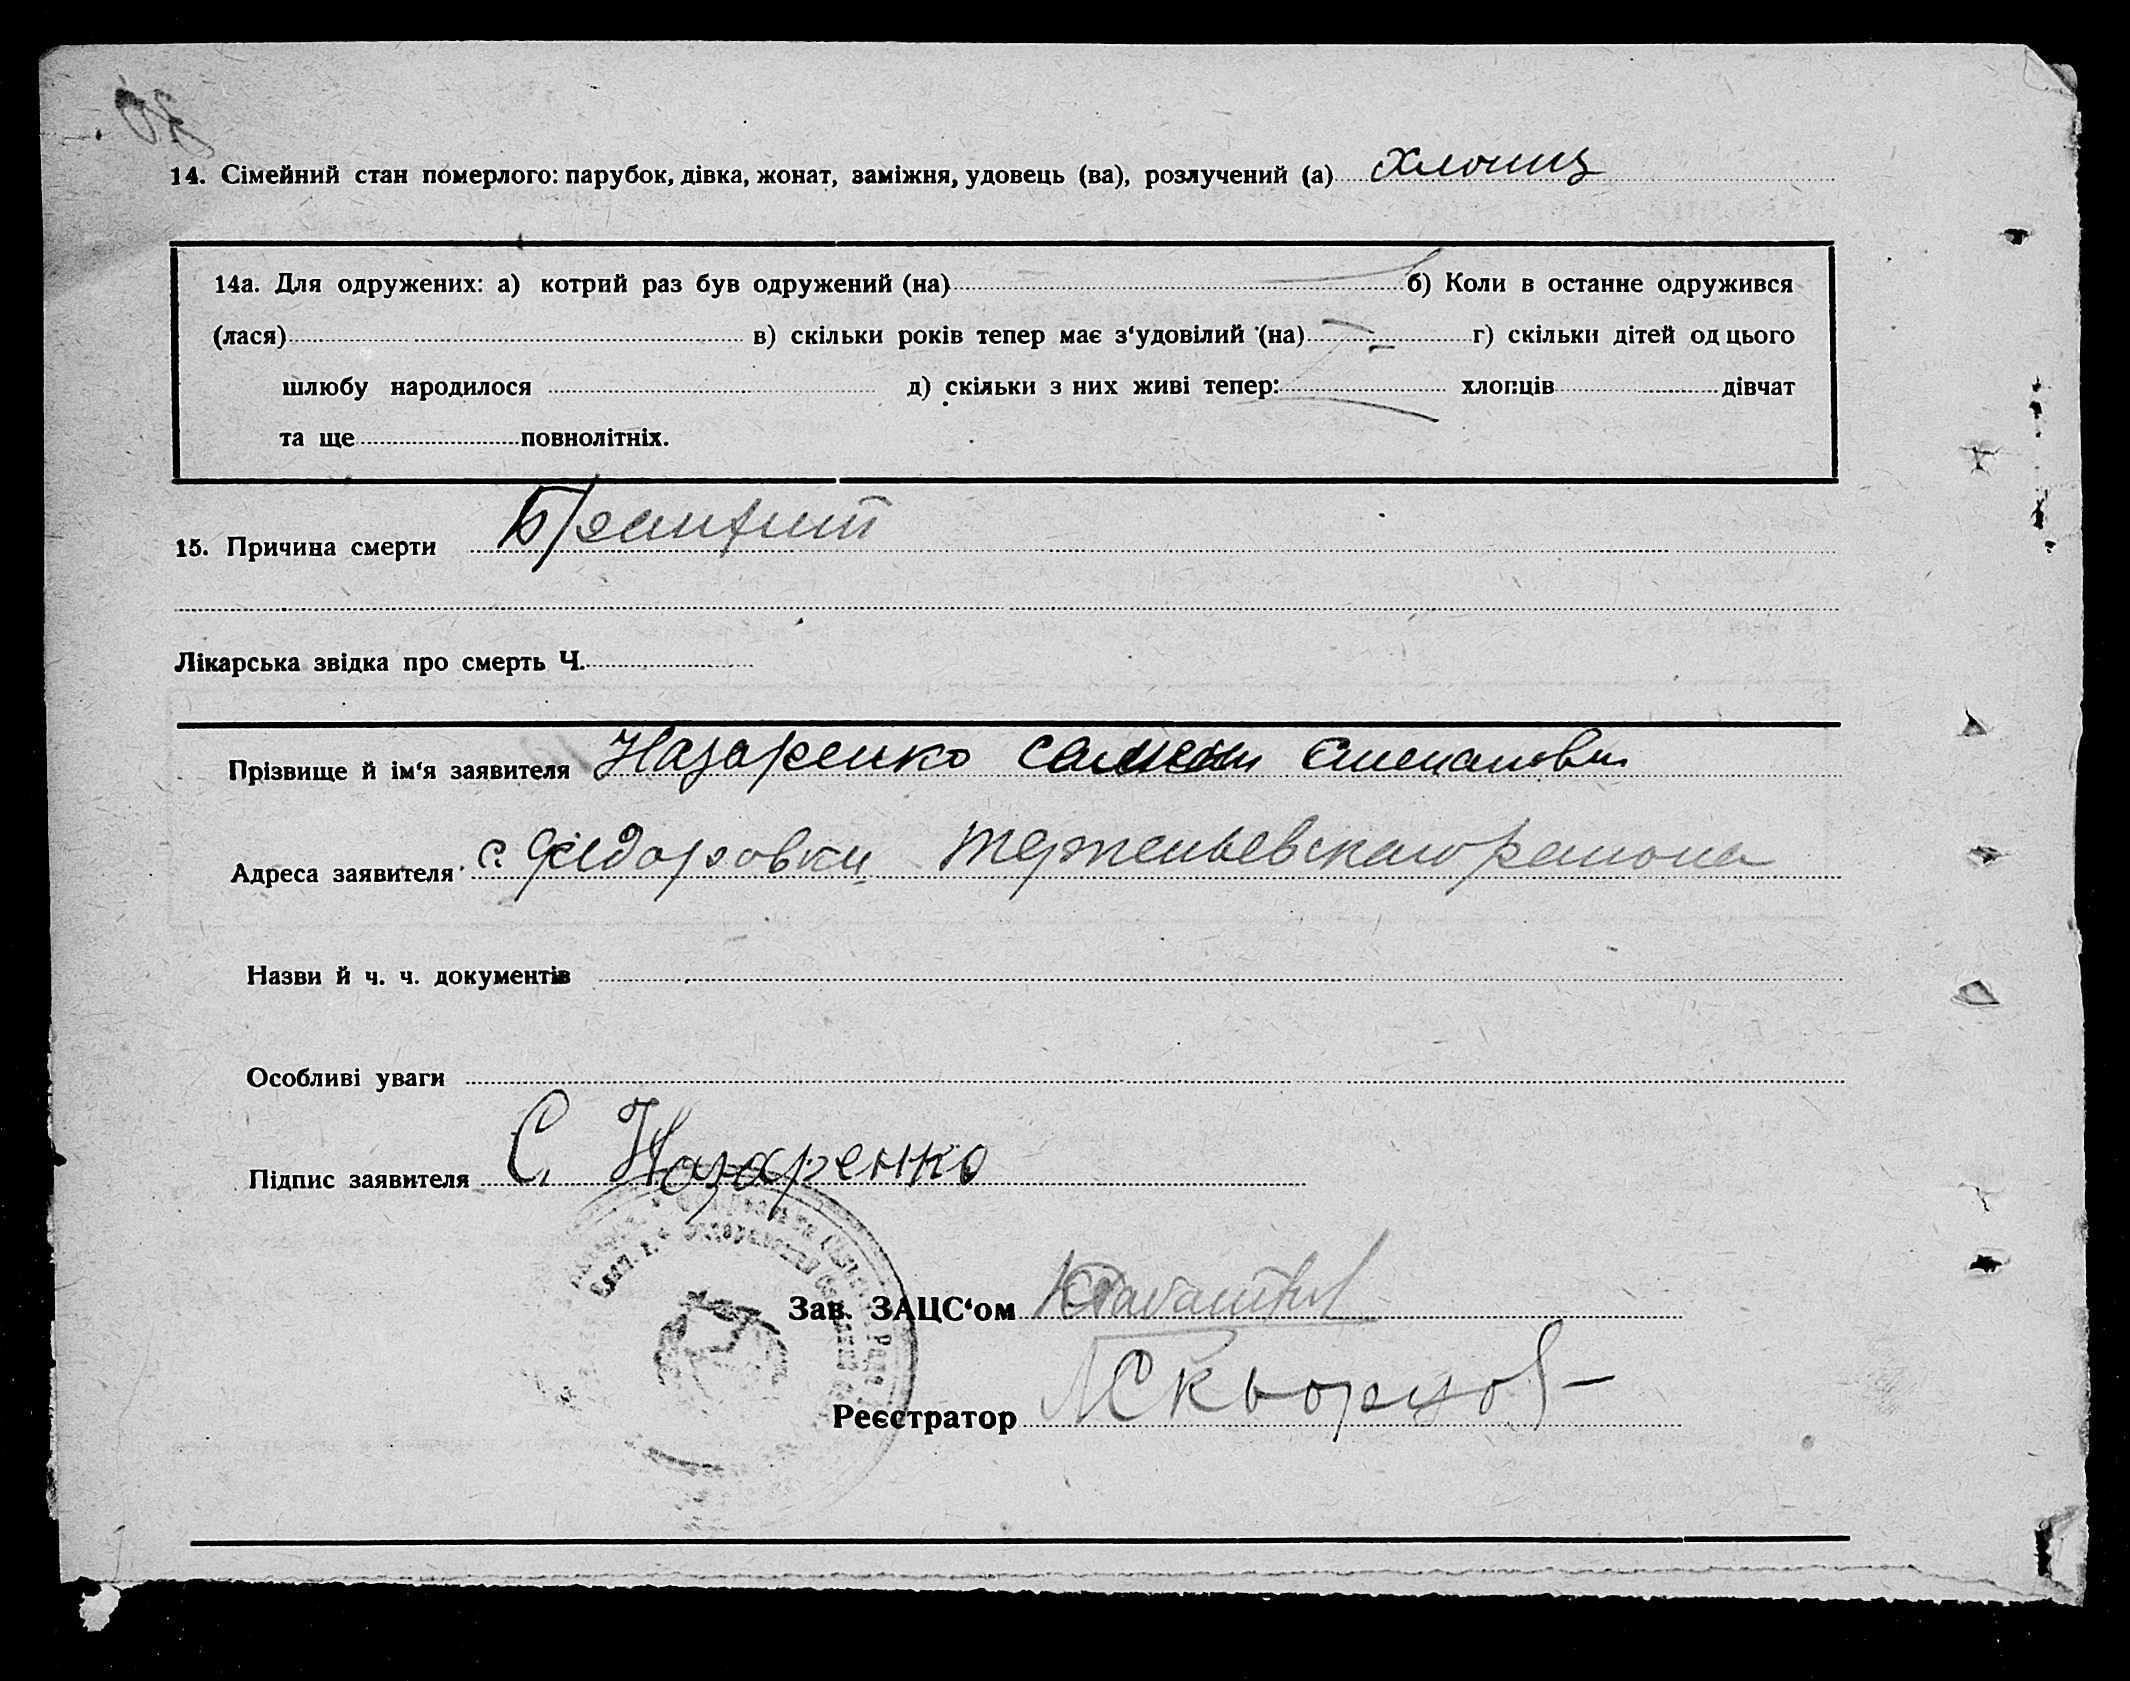 14. Сімейний стан померлого: парубок, дівка, жонат, заміжня, удовець (ва), розлучений (а) хлопиц
14а. Для одружених: а) котрий раз був одружений (на) б) Коли в останне одружився
(лася) в) скільки років тепер має з'удовілий (на) г) скільки дітей од цього
шлюбу народилося д) скільки з них живі тепер: хлопців дівчат
та ще повнолітніх.
15. Причина смерти
Лікарська звідка про смерть Ч.
Прізвище й ім'я заявителя Назаренко Степанович
Адреса заявителя с. Федоровки района
Назви й ч. ч. документів
Особливі уваги
Підпис заявителя С. Назаренко
Зав. ЗАЦС'ом
Реєстратор Скворцов